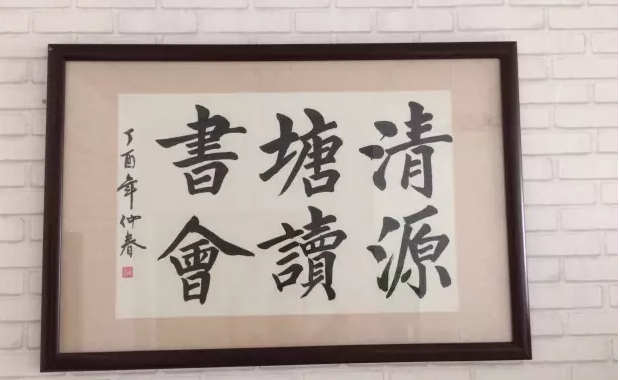 清源
塘讀
書會
丁酉年仲春